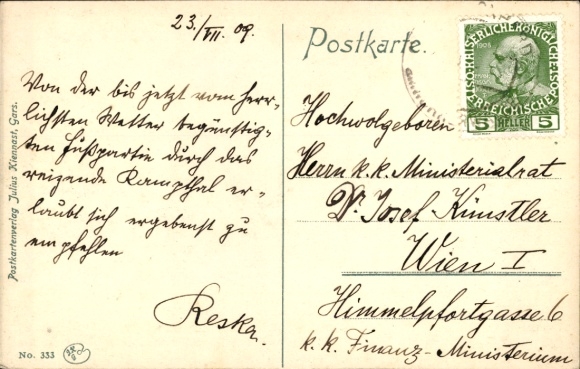 23./VII. 09.
Von der bis jetzt vom herr-
lichsten Wetter begünstig-
ten Fußpartie durch das
reizende Kampthal er-
laubt sich ergebenst zu
empfehlen
Reska.
Postkartenverlag Julius Kiennast, Gars.
No. 333
Postkarte.
KAISERLICHE KÖNIGLICHE ÖSTERREICHISCHE POST
1908
5 HELLER 5
Hochwolgeboren
Herrn k.k. Ministerialrat
Dr. Josef Künstler
Wien I
Himmelpfortgasse 6
k.k. Finanz-Ministerium